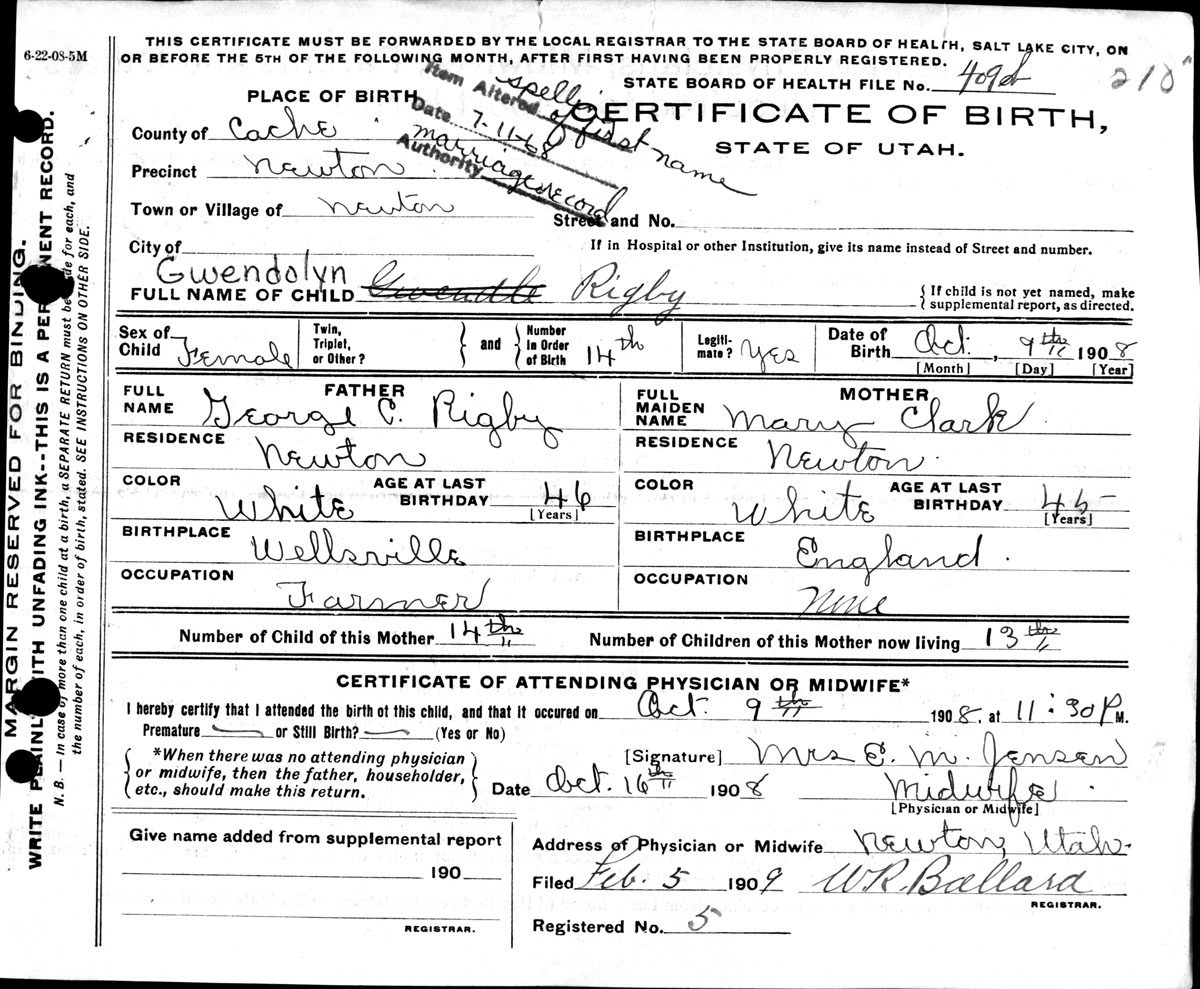 6-22-08-5M
THIS CERTIFICATE MUST BE FORWARDED BY THE LOCAL REGISTRAR TO THE STATE BOARD OF HEALTH, SALT LAKE CITY, ON
OR BEFORE THE 5TH OF THE FOLLOWING MONTH, AFTER FIRST HAVING BEEN PROPERLY REGISTERED.
STATE BOARD OF HEALTH FILE No. 409
210
PLACE OF BIRTH
CERTIFICATE OF BIRTH,
STATE OF UTAH.
Item Altered spelling of first name
Date 7-11-68
Authority marriage record
County of Cache
Precinct Newton
Town or Village of Newton
Street and No.
City of
If in Hospital or other Institution, give its name instead of Street and number.
Gwendolyn
FULL NAME OF CHILD Gwendle Rigby
{ If child is not yet named, make
supplemental report, as directed.
Sex of Child Female
Twin, Triplet, or Other? } and { Number in Order of Birth 14th
Legitimate? Yes
Date of Birth Oct. , 9th 1908
[Month] [Day] [Year]
FATHER
FULL NAME George C. Rigby
RESIDENCE Newton
COLOR White
AGE AT LAST BIRTHDAY 46
[Years]
BIRTHPLACE Wellsville
OCCUPATION Farmer
MOTHER
FULL MAIDEN NAME Mary Clark
RESIDENCE Newton.
COLOR White
AGE AT LAST BIRTHDAY 45
[Years]
BIRTHPLACE England.
OCCUPATION None
Number of Child of this Mother 14th Number of Children of this Mother now living 13th
CERTIFICATE OF ATTENDING PHYSICIAN OR MIDWIFE*
I hereby certify that I attended the birth of this child, and that it occured on Oct. 9th 1908, at 11:30 P M.
Premature or Still Birth? (Yes or No)
*When there was no attending physician
or midwife, then the father, householder,
etc., should make this return.
[Signature] Mrs E. M. Jensen
Date Oct. 16th 1908 Midwife
[Physician or Midwife]
Give name added from supplemental report
190
REGISTRAR.
Address of Physician or Midwife Newton, Utah.
Filed Feb. 5 1909 W.R. Ballard
REGISTRAR.
Registered No. 5
MARGIN RESERVED FOR BINDING.
WRITE PLAINLY WITH UNFADING INK--THIS IS A PERMANENT RECORD.
N. B. — In case of more than one child at a birth, a SEPARATE RETURN must be made for each, and
the number of each, in order of birth, stated. SEE INSTRUCTIONS ON OTHER SIDE.